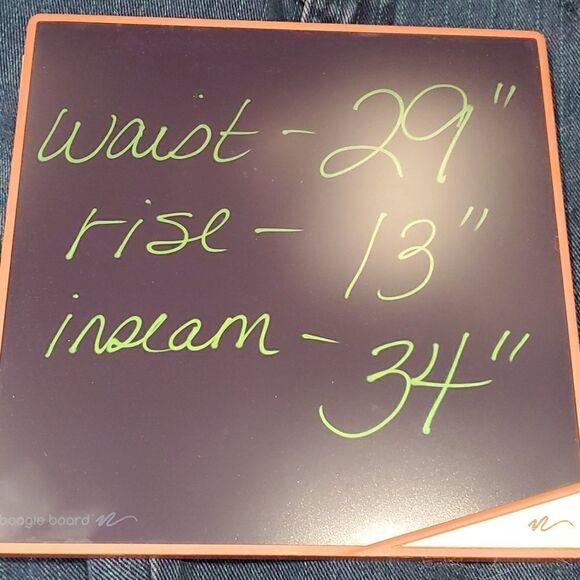 waist - 29"
rise - 13"
inseam - 34"
boogie board